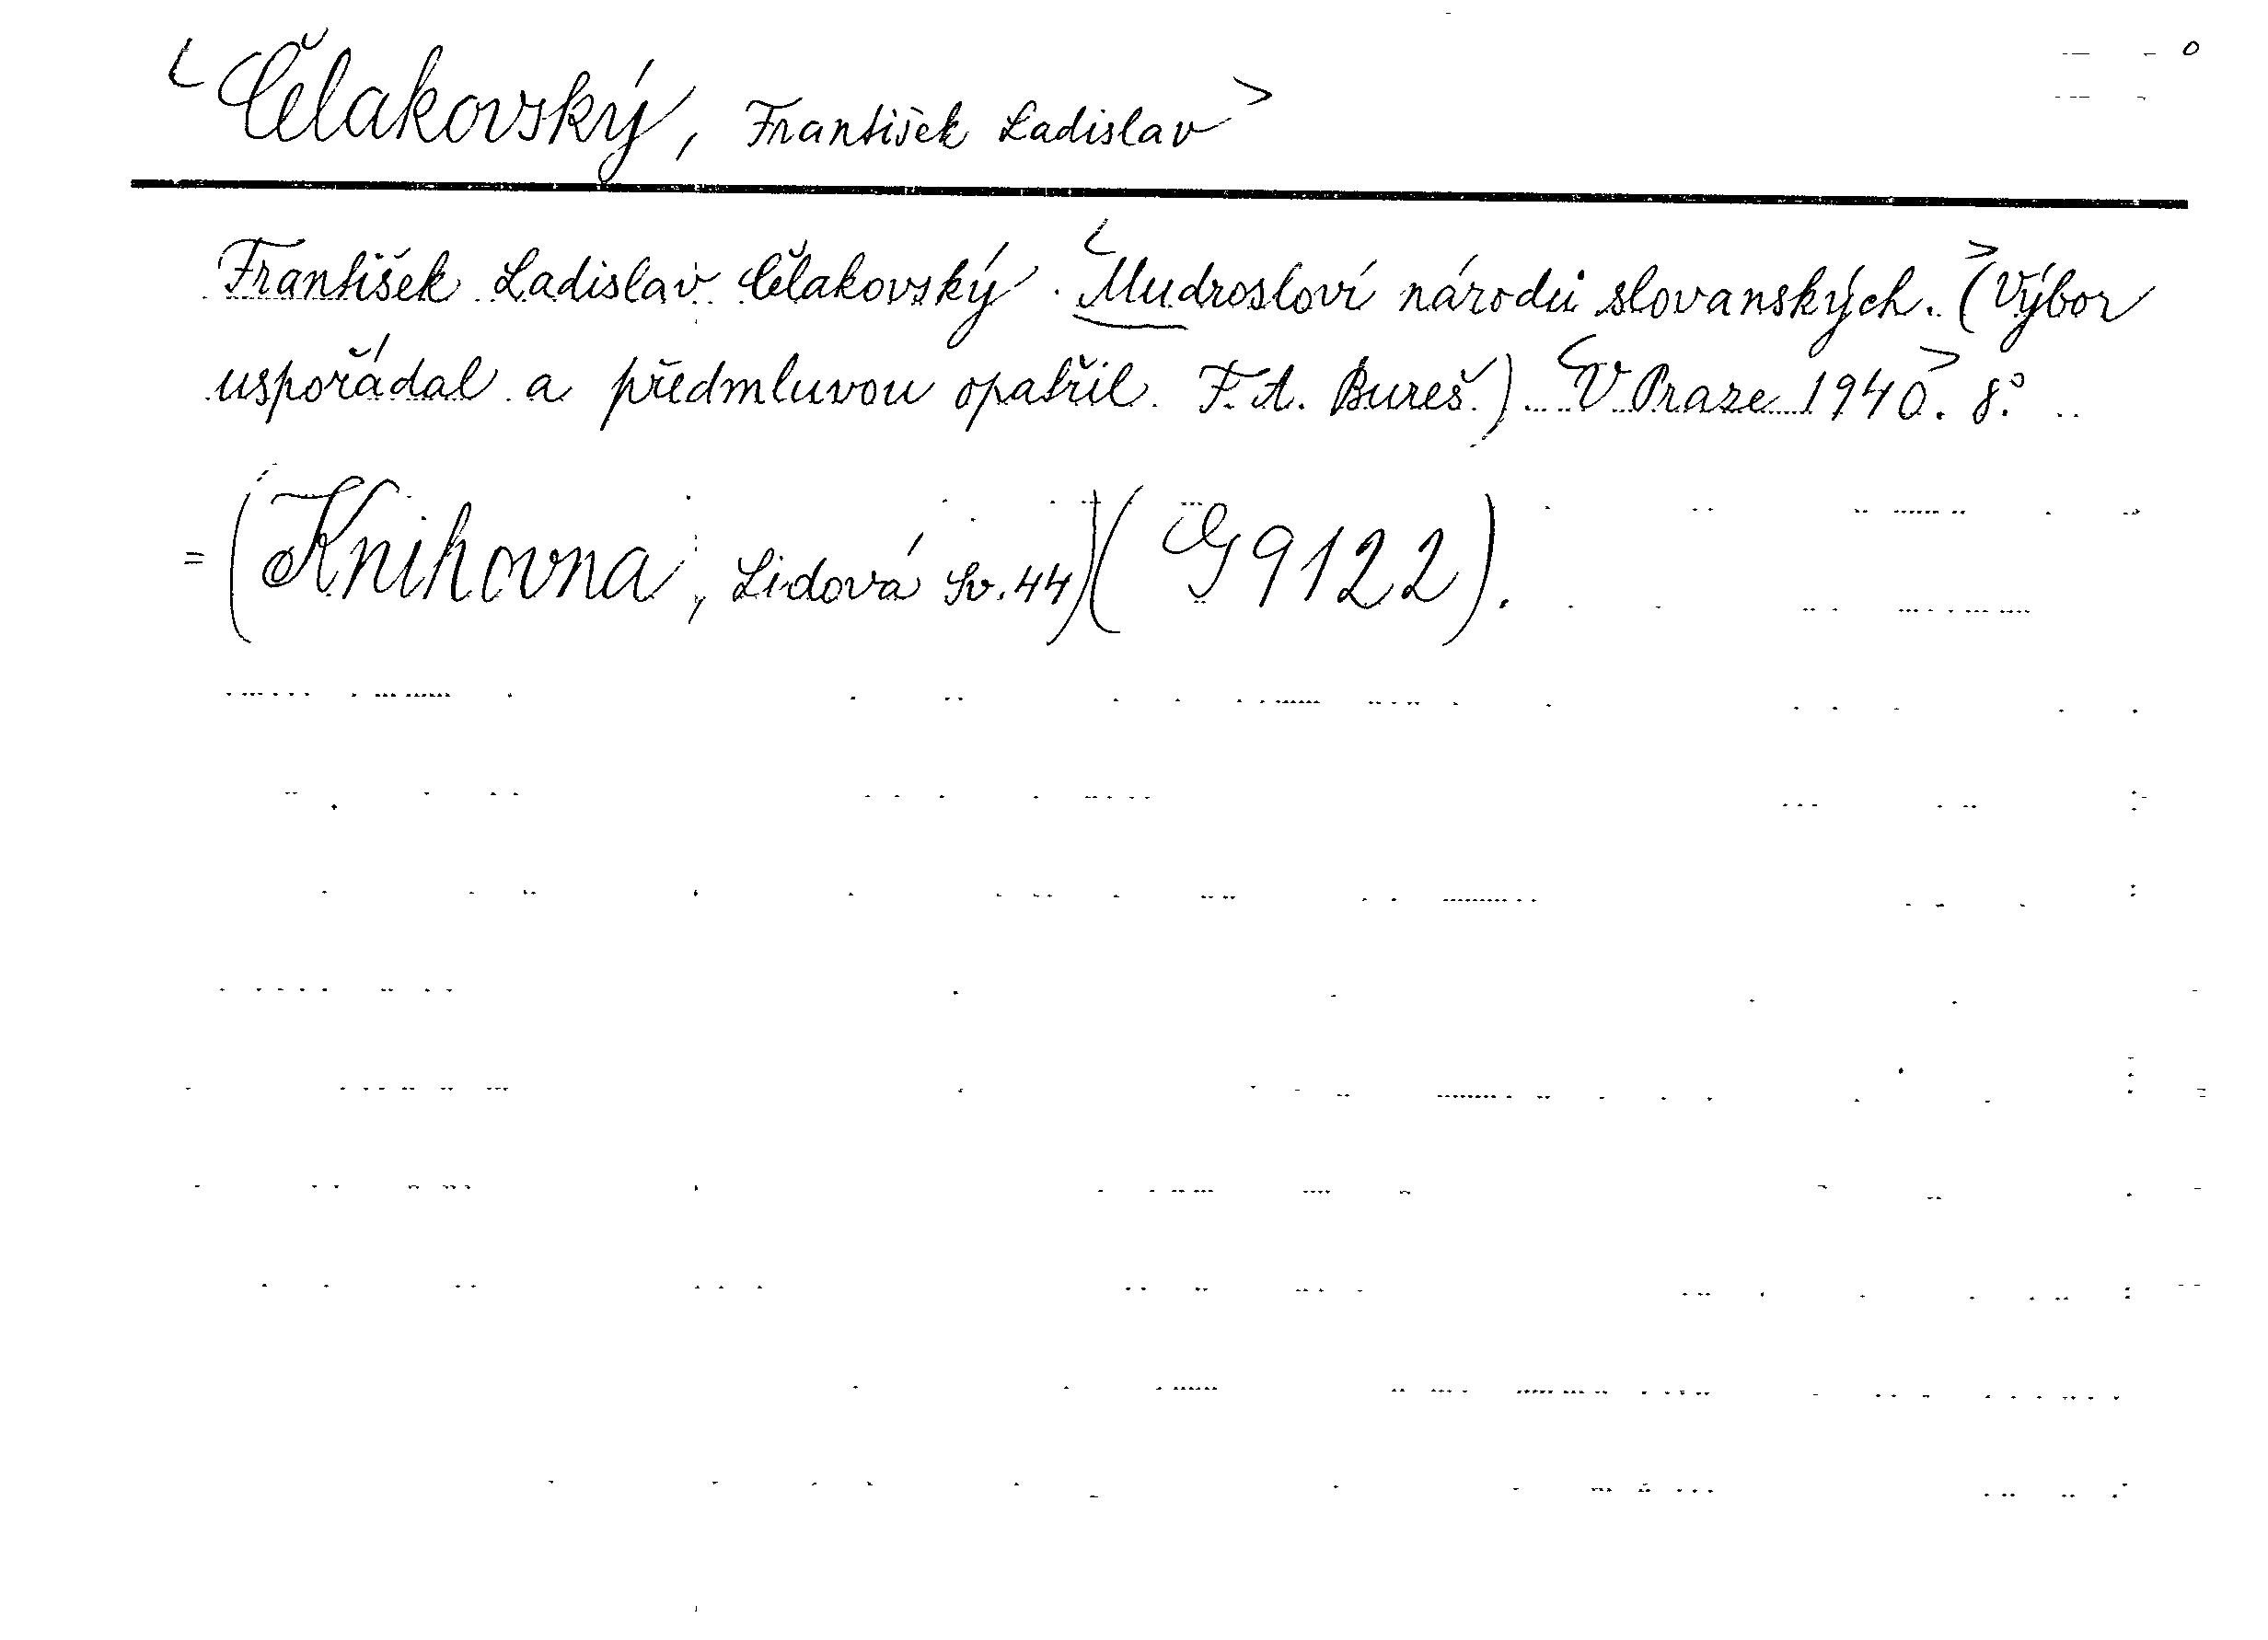 <Čelakovský, František Ladislav>
František Ladislav Čelakovský. <Mudrosloví národů slovanských.> (Výbor
uspořádal a předmluvou opatřil F. A. Bureš.) <V Praze 1940>. 8°.
= (Knihovna, Lidová Sv. 44) (G 9122).